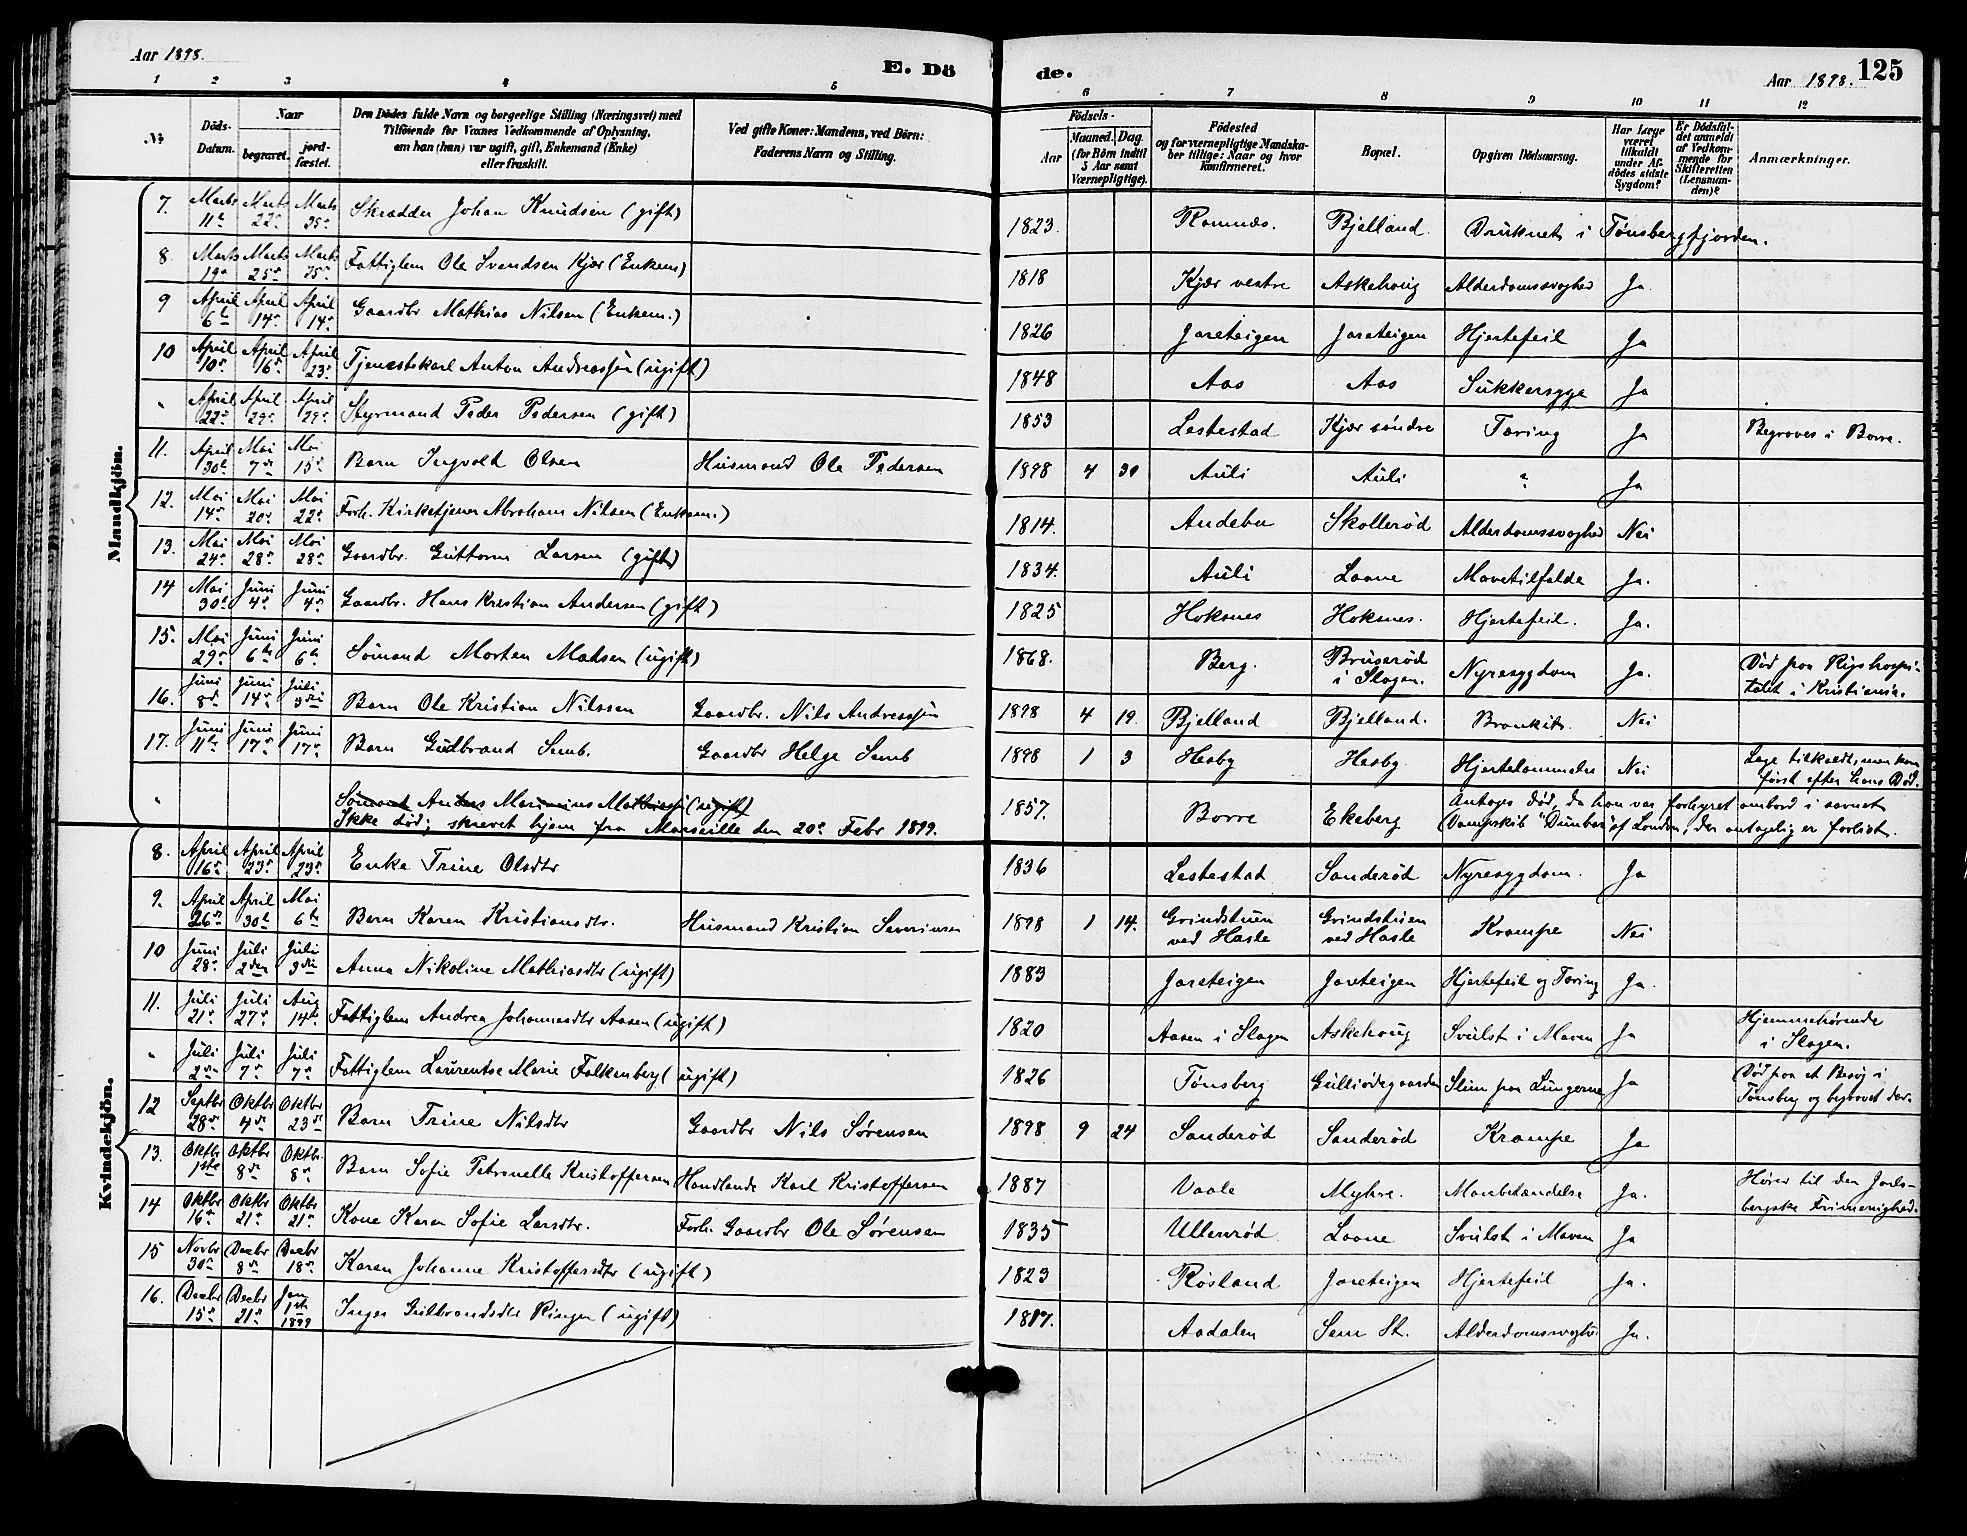 Aar 1898.
E. Dö
1 2 3 4 5
No.
Döds-Datum.
Naar
begravet.
jord-fæstet.
Den Dödes fulde Navn og borgerlige Stilling (Næringsvei) med
Tilföiende for Voxnes Vedkommende af Oplysning,
om han (hun) var ugift, gift, Enkemand (Enke)
eller fraskilt.
Ved gifte Koner: Mandens, ved Börn:
Faderens Navn og Stilling.
Mandkjön.
7. Marts 11te Marts 22de Marts 25de Skrædder Johan Knudsen (gift)
8. Marts 19de Marts 25de Marts 25de Fattiglem Ole Svendsen Kjær (Enkem)
9 April 6te April 14de April 14de Gaardbr Mathias Nilsen (Enkem.)
10 April 10de April 16de April 23de Tjenestekarl Anton Andreassen (ugift)
" April 22de April 29de April 29de Styrmand Peder Pedersen (gift)
11. April 30te Mai 7de Mai 15de Barn Ingvald Olsen Husmand Ole Pedersen
12. Mai 14de Mai 20de Mai 22de Forh. Kirketjener Abraham Nilsen (Enkem.)
13. Mai 24de Mai 28de Mai 28de Gaardbr. Guttorm Larsen (gift)
14 Mai 30te Juni 4de Juni 4de Gaardbr. Hans Kristian Andersen (gift)
15. Mai 29de Juni 6te Juni 6te Sömand Morten Madsen (ugift)
16. Juni 8de Juni 14de Juli 3die Barn Ole Kristian Nilssen Gaardbr. Nils Andreassen
17. Juni 11te Juni 17de Juni 17de Barn Gudbrand Semb. Gaardbr Helge Semb
" Sömand Anders Marinius Mathiassen (ugift)
Ikke död; skrevet hjem fra Marseille den 20de Febr 1899.
Kvindekjön.
8. April 16de April 23de April 23de Enke Trine Olsdtr
9. April 26de April 30te Mai 6te Barn Karen Kristiansdtr. Husmand Kristian Severinsen
10 Juni 28de Juli 2den Juli 3die Anna Nikoline Mathiasdtr (ugift)
11. Juli 21de Juli 27de Aug 14de Fattiglem Andrea Johannesdtr Aasen (ugift)
" Juli 2den Juli 7de Juli 7de Fattiglem Laurentse Marie Falkenberg (ugift)
12 Septbr 28de Oktbr 4de Oktbr 23de Barn Trine Nilsdtr Gaardbr Nils Sørensen
13. Oktbr 1ste Oktbr 8de Oktbr. 8de Barn Sofie Petronelle Kristoffersen Handlende Karl Kristoffersen
14 Oktbr 16de Oktbr 21de Oktbr 21de Kone Karen Sofie Larsdtr. Forh. Gaardbr Ole Sørensen
15 Novbr 30te Decbr 8de Decbr 18de Karen Johanne Kristoffersdtr (ugift)
16. Decbr 15de Decbr 21de Jan 1ste 1899 Inger Gulbrandsdtr Ringen (ugift)
de.
Aar 1898. 125
6 7 8 9 10 11 12
Födsels-
Aar
Maaned. Dag.
(for Börn indtil
5 Aar samt
Værnepligtige).
Födested
og for værnepligtige Mandska-
ber tillige: Naar og hvor
konfirmeret.
Bopæl.
Opgiven Dödsaarsag.
Har Læge
været
tilkaldt
under Af-
dödes sidste
Sygdom?
Er Dödsfal-
det anmeldt
af Vedkom-
mende for
Skifteretten
(Lensman-
den)?
Anmærkninger.
1823. Ramnæs. Bjelland. Druknet i Tønsbergfjorden.
1818 Kjær vestre Askehoug Alderdomssvaghed Ja.
1826 Jareteigen Jareteigen Hjertefeil Ja
1848 Aas Aas Sukkersyge Ja
1853 Lestestad Kjær søndre Tæring Ja Begraves i Borre.
1898 4 30 Auli Auli " Ja
1814. Andebu Skollerød Alderdomssvaghed Nei
1834. Auli Laane Mavetilfælde Ja.
1825 Hoksnes Hoksnes. Hjertefeil. Ja.
1868. Berg. Bruserød i Slagen. Nyresygdom Ja. Død paa Rigshospi-
talet i Kristiania.
1898 4 19. Bjelland Bjelland. Bronkit. Nei
1898 1 3 Hesby Hesby. Hjertelammelse Nei Læge tilkaldt, men kom
først efter hans Död.
1857. Borre Ekeberg Antages död, da han var forhyret ombord i savnet
Dampskib "Dunbar" af London, der antagelig er forlist.
1836 Lestestad Sanderød Nyresygdom. Ja
1898 1 14. Grindstuen ved Hasle Grindstuen ved Hasle Krampe Nei
1883 Jareteigen Jareteigen Hjertefeil og Tæring Ja.
1820 Aasen i Slagen Askehoug Svulst i Maven Ja Hjemmehørende
i Slagen.
1826 Tønsberg Gulliødegaarden Slim paa Lungerne Ja Død paa et Besøg i
Tønsberg og begravet der.
1898 9 24 Sanderød Sanderød Krampe Ja
1887 Vaale Myhre. Ja. Hører til den Jarls-
bergske Frimenighed.
1835 Ullenrød Laane Svulst i Maven Ja
1823 Røsland Jareteigen Hjertefeil Ja.
1817. Aadalen Sem St. Alderdomssvaghed Ja.